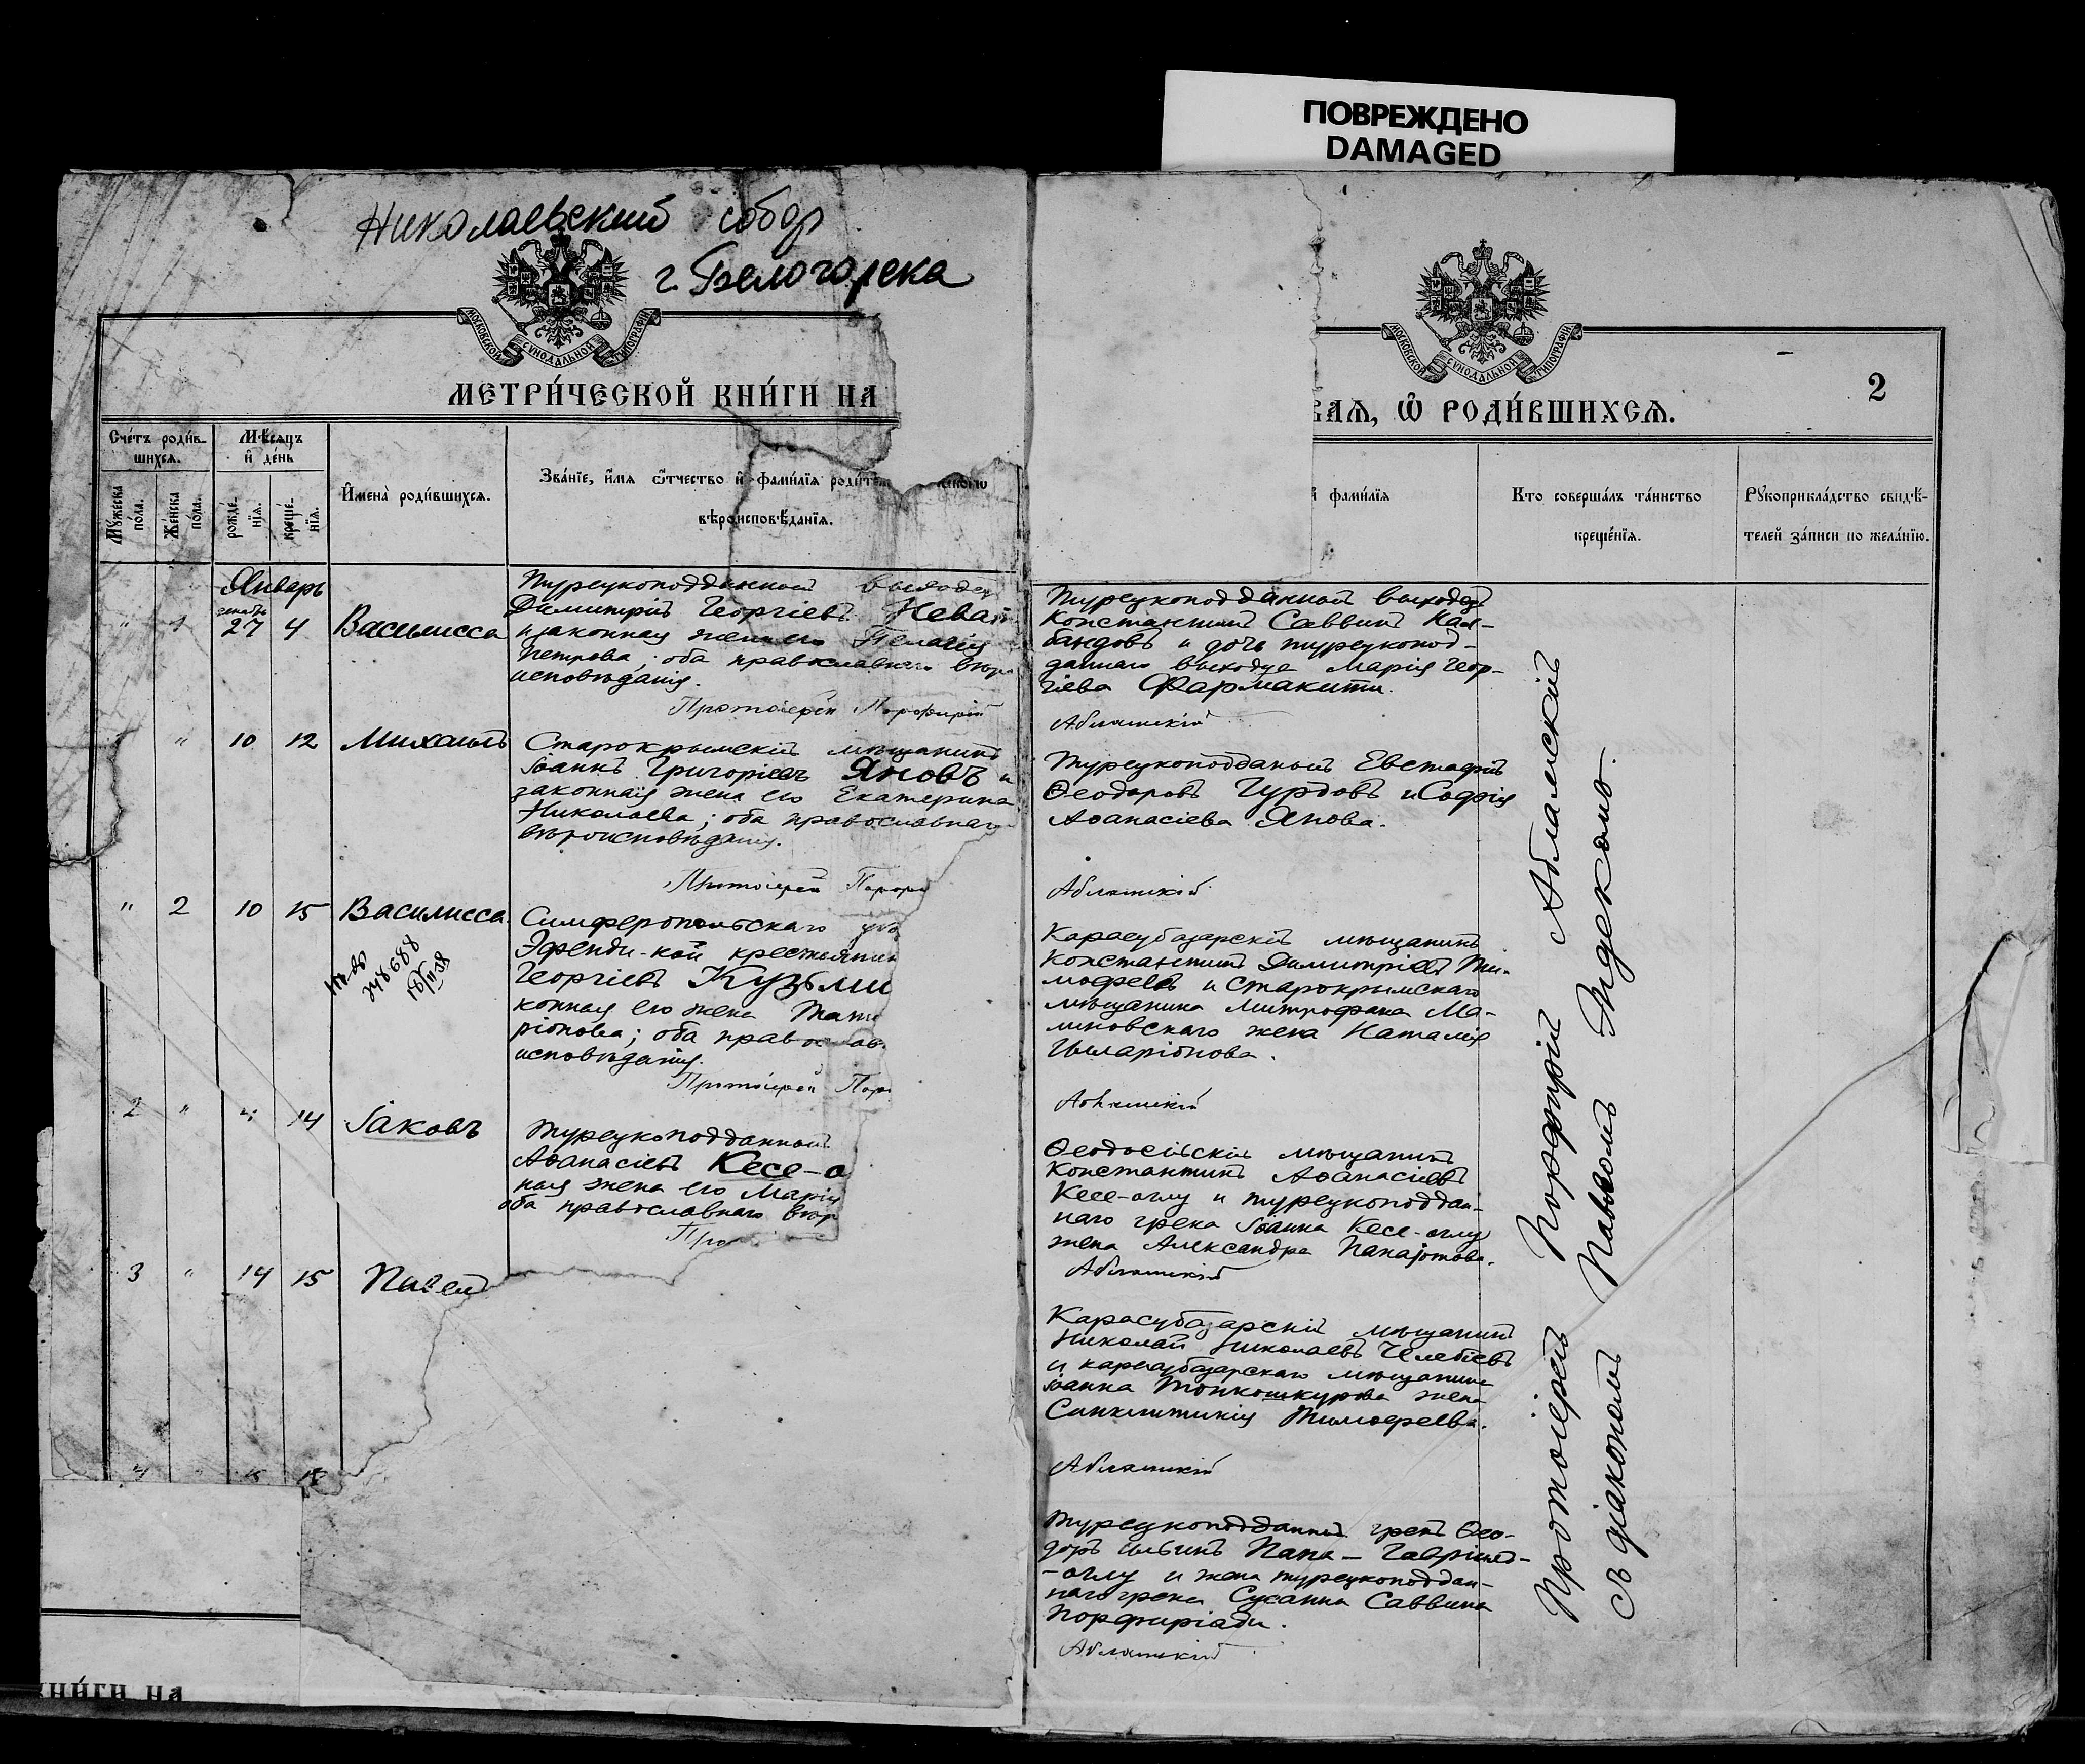 ПОВРЕЖДЕНО
DAMAGED
Николаевский собор
г. Белогорска
МОСКОВСКОЙ СѴНОДАЛЬНОЙ ТИПОГРАФІИ
МЕТРИ́ЧЕСКОЙ КНИ́ГИ НА
Сче́тъ роди́в-
шихсѧ.
Мѣ́сѧцъ
и҆ де́нь
Мꙋ́жеска
по́ла.
Же́нска
по́ла.
рожде́-
нїѧ.
креще́-
нїѧ.
И҆мена̀ роди́вшихсѧ.
Зва́нїе, и҆́мѧ ѻ҆́тчество и҆ фами́лїѧ роди́те
вѣроисповѣ́данїѧ.
Январь
декабрь
" 1 27 4 Василисса
Турецкоподданный выходец
Димитрій Георгіевъ Невай
и законная жена его Пелагія
Петрова; оба православнаго веро
исповѣданія.
Протоіерей Порфирій
" 10 12 Михаилъ
Старокрымскій мѣщанинъ
Іоаннъ Григоріевъ Яновъ и
законная жена его Екатерина
Николаева; оба православнаго
вѣроисповѣданія.
Протоіерей Порфи
" 2 10 15 Василисса
248688
Симферопольскаго уѣз
Эфенди-кой крестьянин
Георгіевъ Кузьми
конная его жена Тать
ріонова; оба православ
исповѣданія.
Протоіерей Пор
2 " 4 14 Іаковъ
Турецкоподданный
Аѳанасіевъ Кесе-о
ная жена его Марія
оба православнаго вѣр
Про
3 " 14 15 Павелъ
4
НИ́ГИ НА
МОСКОВСКОЙ СѴНОДАЛЬНОЙ ТИПОГРАФІИ
2
ВАѦ, Ѡ҆ РОДИ́ВШИХСѦ.
фами́лїѧ
Кто соверша́лъ та́инство
креще́нїѧ.
Рꙋкоприкла́дство свидѣ́-
телей за́писи по жела́нїю.
Турецкоподданный выходецъ
Константинъ Саввинъ Кал-
бандовъ и дочь турецкопод-
даннаго выходца Марія Геор-
гіева Фармакити.
Абламскій
Турецкоподданный Евстафій
Ѳеодоровъ Гурдовъ и Софія
Аѳанасіева Янова.
Абламскій
Карасубазарскій мѣщанинъ
Константинъ Димитріевъ Ти-
мофеевъ и старокрымскаго
мѣщанина Митрофана Ма-
линовскаго жена Наталія
Илларіонова.
Абламскій
Ѳеодосійскій мѣщанинъ
Константинъ Аѳанасіевъ
Кесе-оглу и турецкоподдан-
наго грека Іоанна Кесе-оглу
жена Александра Панаіотова.
Абламскій
Карасубазарскій мѣщанинъ
Николай Николаевъ Челебіевъ
и карасубазарскаго мѣщанина
Іоанна Топкошкурова жена
Синклитикія Тимофеева.
Абламскій
Турецкоподданный грекъ Ѳео-
доръ Ильинъ Папа-Гавріилъ-
-оглу и жена турецкоподдан-
наго грека Сусанна Саввина
Порфиріади.
Абламскій
Протоіерей Порфирій Абламскій
съ діакономъ Павломъ Тидекомъ.